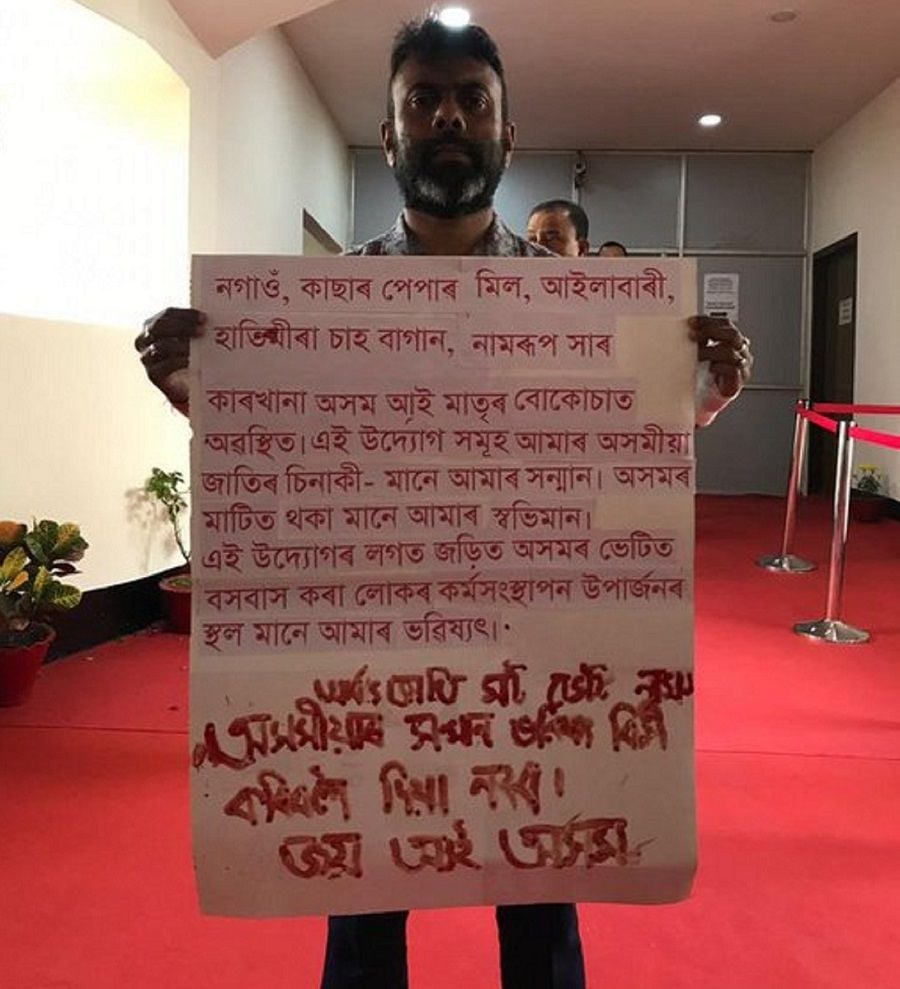 নগাওঁ, কাছাৰ পেপাৰ মিল, আইলাবাৰী,
হাতিমীৰা চাহ বাগান, নামৰূপ সাৰ
কাৰখানা অসম আই মাতৃৰ বোকোচাত
অৱস্থিত। এই উদ্যোগ সমূহ আমাৰ অসমীয়া
জাতিৰ চিনাকী- মানে আমাৰ সন্মান। অসমৰ
মাটিত থকা মানে আমাৰ স্বভিমান।
এই উদ্যোগৰ লগত জড়িত অসমৰ ভেটিত
বসবাস কৰা লোকৰ কৰ্মসংস্থাপন উপাৰ্জনৰ
স্থল মানে আমাৰ ভৱিষ্যৎ।
অসমীয়াৰ সন্মান
দিয়া নহব।
জয় আই অসম